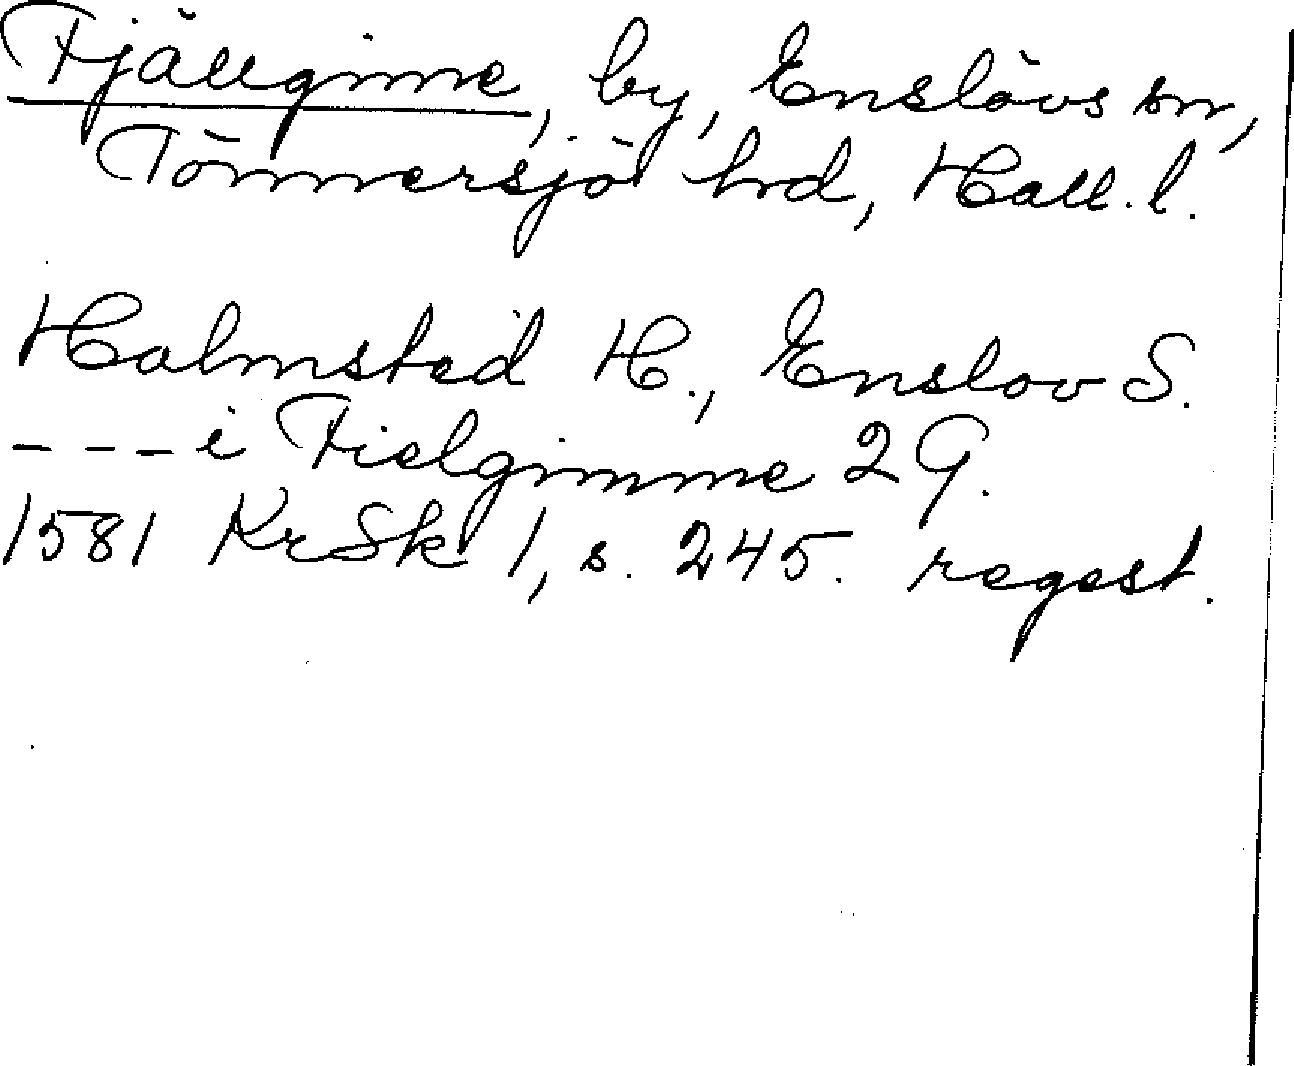 Fjällginne, by, Enslövs sn,
Tönnersjö hrd, Hall. l.
Halmsted H., Enslov S.
--- i Fielgimme 2 G.
1581 KrSk 1, s. 245. regest.